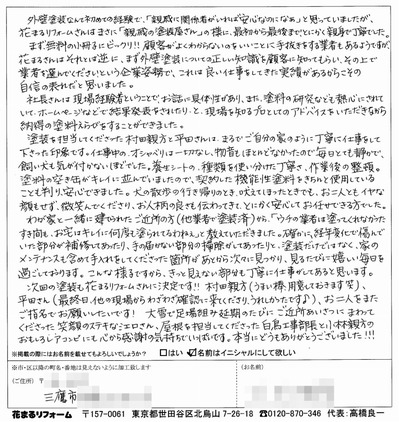 外壁塗装なんて初めての経験で、「親戚に関係者がいれば安心なのになぁ」と思っていましたが、
花まるリフォームさんはまさに「親戚の塗装屋さん」の様に、最初から最後まで、とにかく親身で丁寧でした。
まず無料の小冊子にビックリ!! 顧客がよくわからないのをいいことに手抜きをする業者もあるようですが、
花まるさんはそれとは逆に、まず外壁塗装についての正しい知識を顧客に知ってもらい、その上で
業者を選んでくださいという企業姿勢で、これは良い仕事をしてきた実績があるからこその
自信の表れだと思いました。
社長さんは現場経験者ということでお話に具体性があり、また、塗料の研究なども熱心にされて
いて、ホームページなどで結果発表をされたりと、現場を知るプロとしてのアドバイスをいただきながら
納得の塗料えらびをすることができました。
塗装を担当してくださった村田親方と平田さんは、まるでご自分の家のように丁寧に仕事をして
下さった印象です。仕事中の、オシャベリは一切なし、物音もほとんどなかったので毎日とても静かで、
飼い犬も気が付かないほどでした。養生シートの、種類を使い分けた丁寧さ、作業後の整理。
塗料の空き缶がキレイに並んでいましたので、契約した機能性塗料をきちんと使用している
ことも判り安心できました。犬の散歩の行き帰りのとき、吠えてしまったときでも、お二人ともイヤな
顔もせず、微笑んでくださり、お人柄の良さも伝わってきて、とにかく安心してお任せできる方でした。
わが家と一緒に建られたご近所の方(他業者で塗装済)から、「ウチの業者は塗ってくれなかった
すき間も、お宅はキレイに何度も塗られてるわねぇ」と教えていただきました。確かに、経年劣化で傷んで
いた部分が補修してあったり、手の届かない部分の掃除がしてあったりと、塗装だけではなく、家の
メンテナンスも含めて手入れをしてくださった箇所があとから次々に見つかり、見るたびに嬉しい毎日を
過ごしております。こんな様子ですから、きっと見えない部分も丁寧に仕事がしてあると思います。
次回の塗装も花まるリフォームさんに決定です!! 村田親方(うまい棒、用意しておきます笑)、
平田さん(最終日、他の現場からわざわざ確認に来てくださり、うれしかったです♪)、お二人をまた
ご指名でお願いしたいです! 大雪で足場組みが延期のたびにご近所あいさつにまわって
くださった笑顔のステキなシエロさん、屋根を担当してくださった白鳥工事部長と小林親方の
おもしろトリオにも心から感謝の気持ちでいっぱいです。本当にどうもありがとうございました!!!
※掲載の際にはお名前を載せてもよろしいでしょうか? □はい ☑お名前はイニシャルにして欲しい
※市・区以降の町名・番地は見えないように加工致します
(ご住所) 〒
三鷹市
(お名前)
花まるリフォーム 〒157-0061 東京都世田谷区北烏山7-26-18 ☎0120-870-346 代表:高橋良一